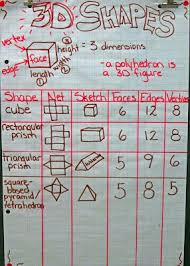 3D SHAPES
vertex
edge
face
height
width
length
= 3 dimensions
- a polyhedron is
a 3D figure
Shape Net Sketch Faces Edges Vertices
cube 6 12 8
rectangular
prism 6 12 8
triangular
prism 5 9 6
square-
based
pyramid/
tetrahedron 5 8 5